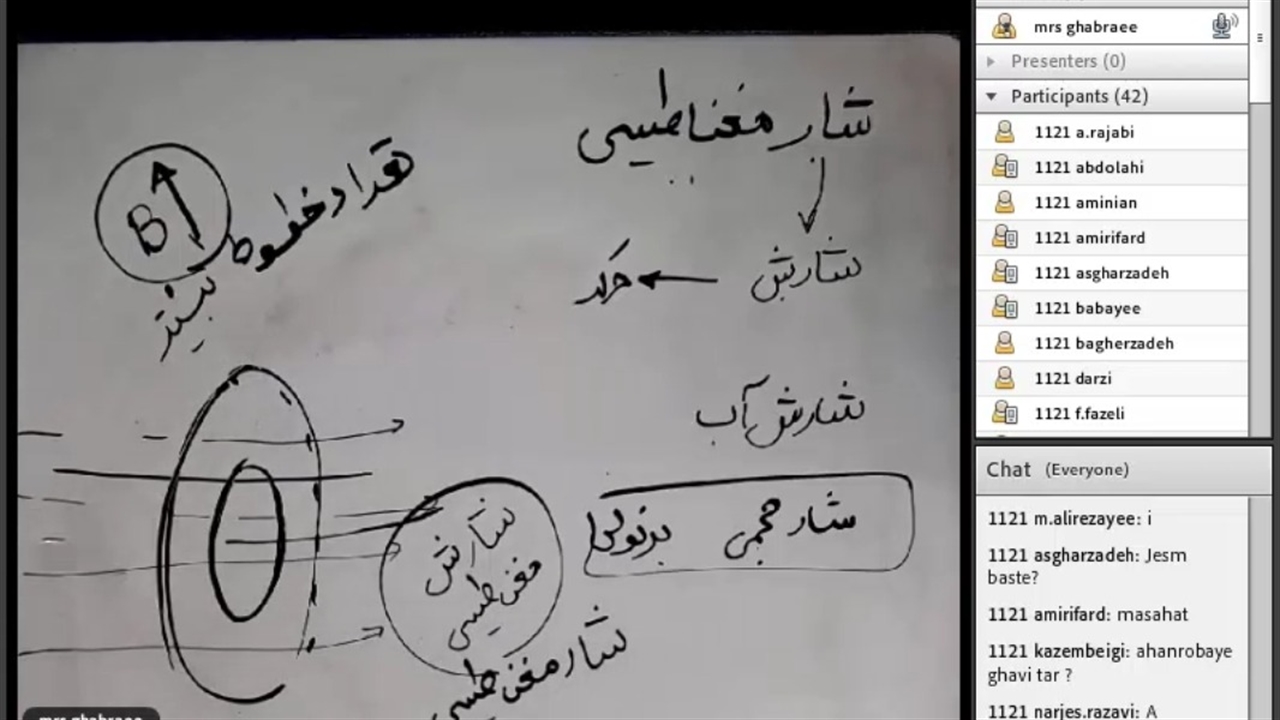 شار مغناطیسی
شارش
شارش آب
شار حجمی برنولی
تعداد خطوط
بیشتر
B
شارش
مغناطیسی
شار مغناطیسی
mrs ghabraee
mrs ghabraee
Presenters (0)
Participants (42)
1121 a.rajabi
1121 abdolahi
1121 aminian
1121 amirifard
1121 asgharzadeh
1121 babayee
1121 bagherzadeh
1121 darzi
1121 f.fazeli
Chat (Everyone)
1121 m.alirezayee: i
1121 asgharzadeh: Jesm
baste?
1121 amirifard: masahat
1121 kazembeigi: ahanrobaye
ghavi tar ?
1121 narjes.razavi: A